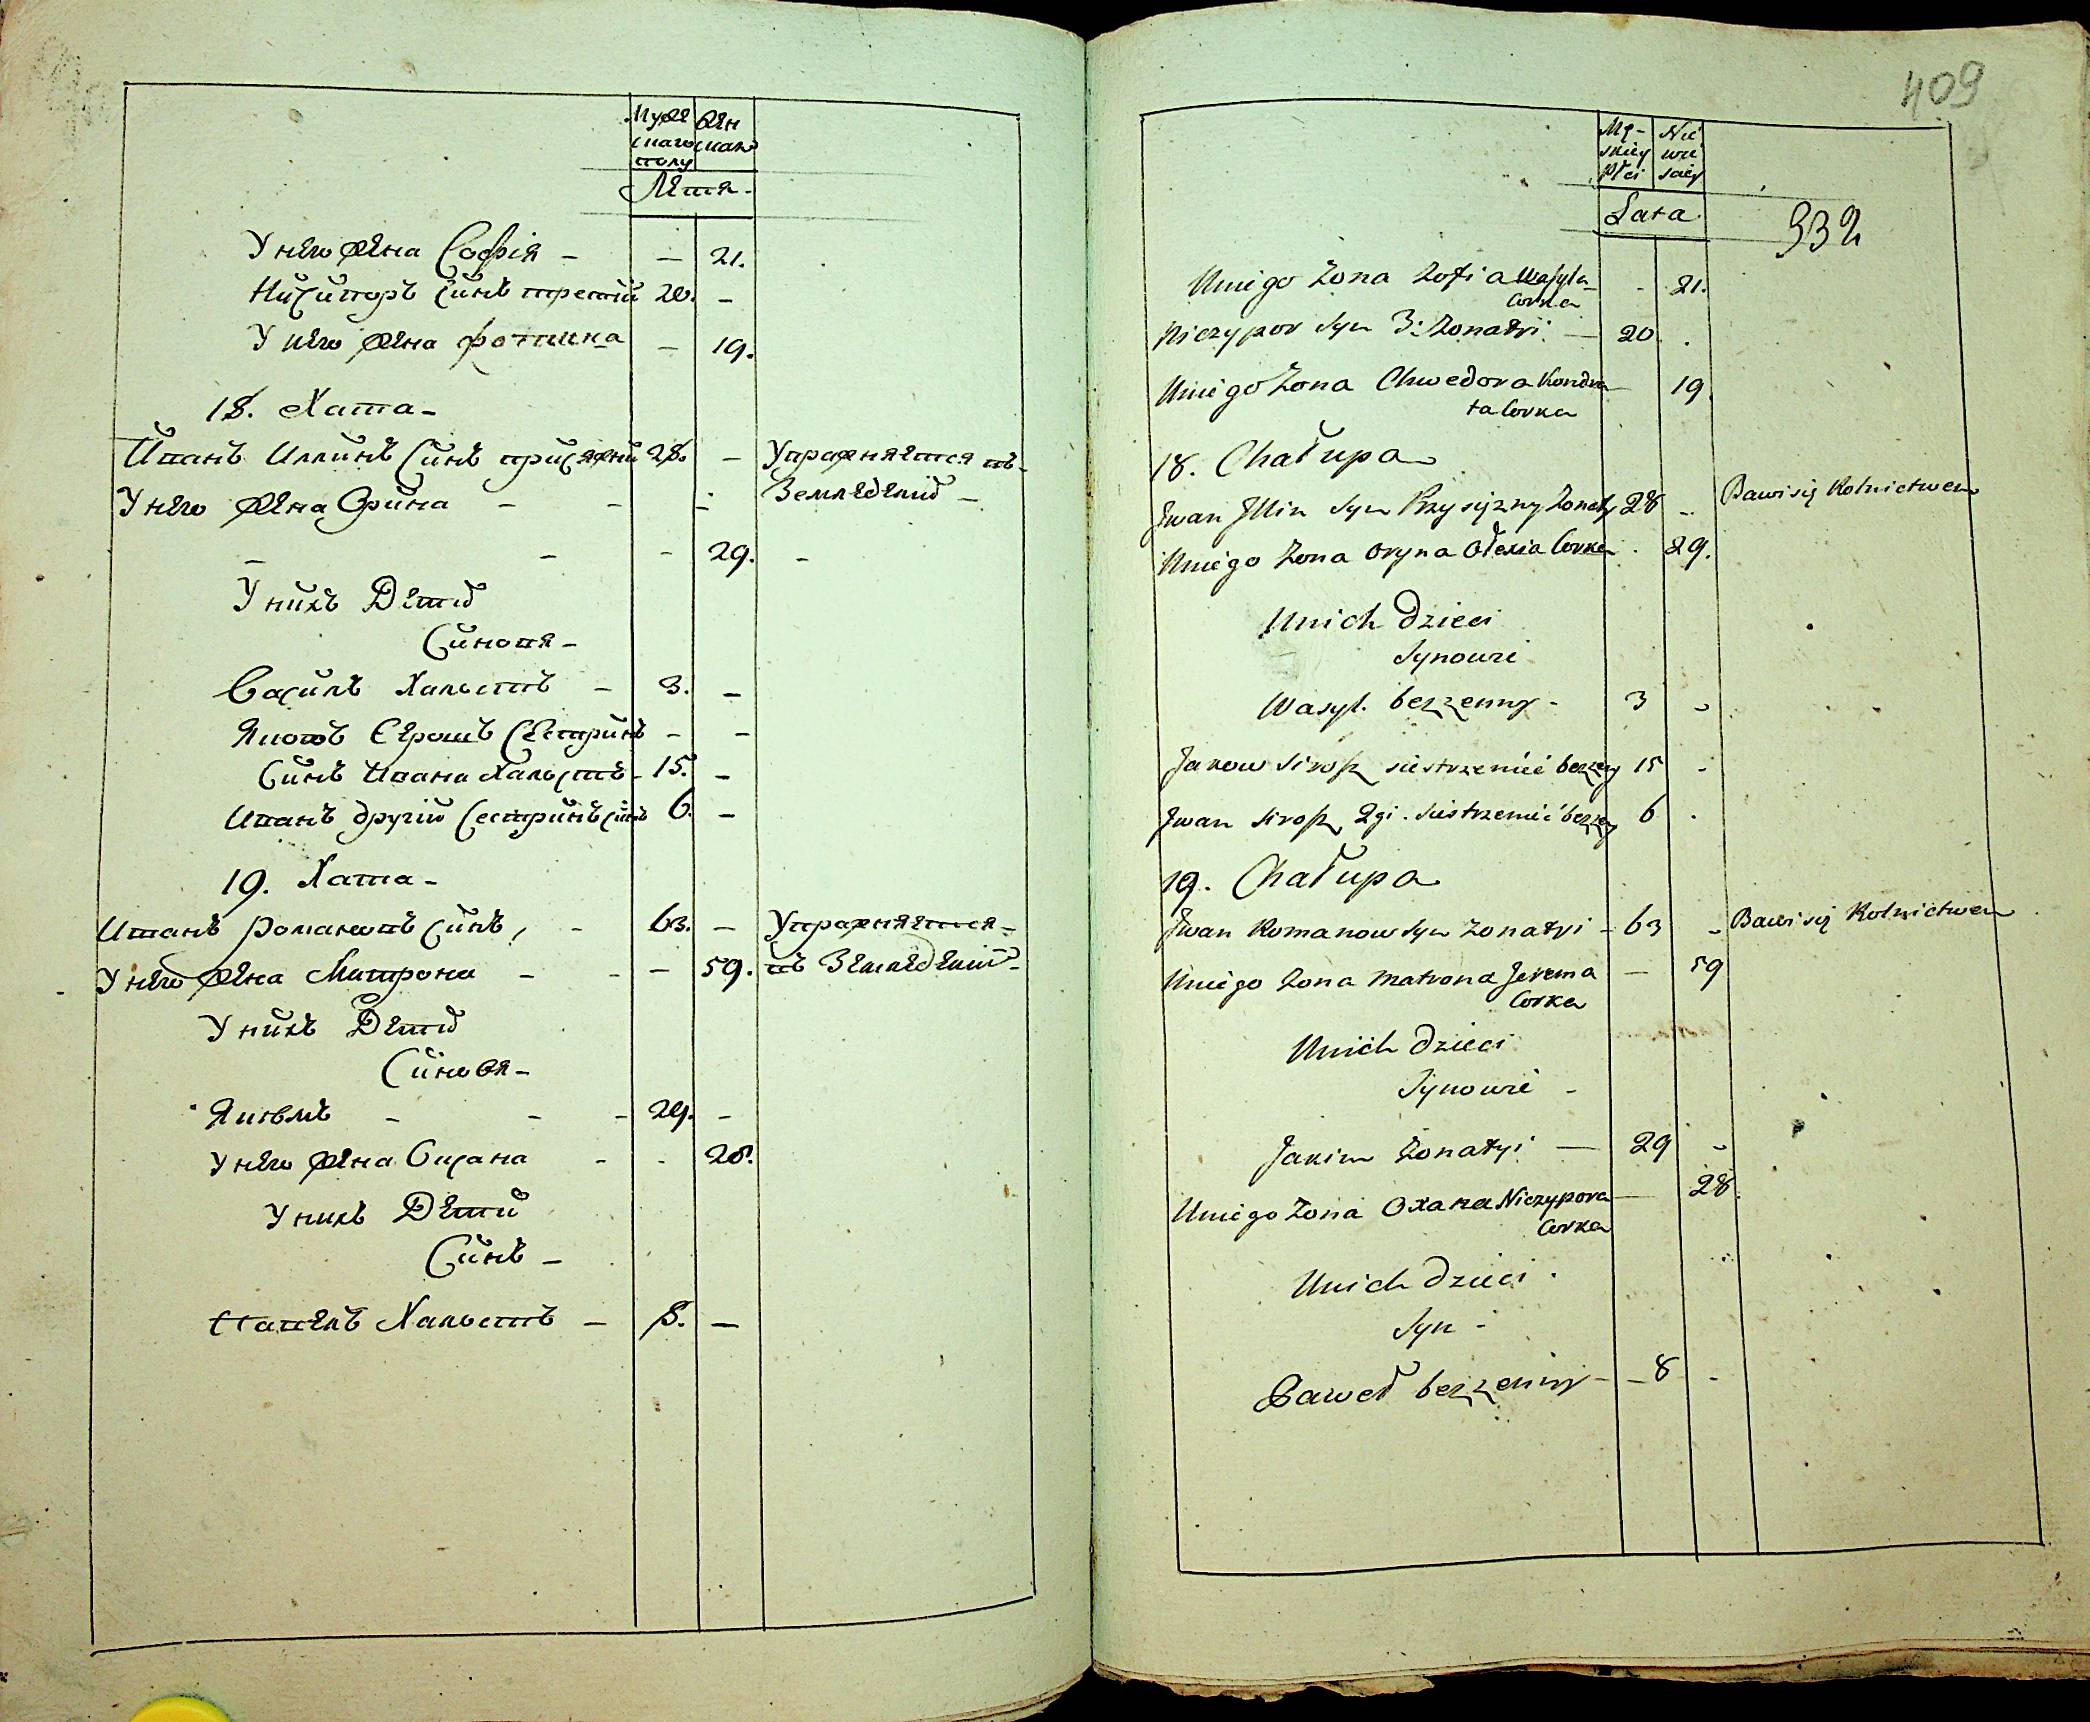 Муже
скаго
полу
Жен
скаго
Лета.
У него жена Софія - - 21.
Ничипоръ Синъ третій 20. -
У него жена Фотинка - 19.
18. Хата -
Иванъ Иллинъ Синъ присяжни 28. - Упражняется въ
У него жена Орина - - - Земледелій -
- - - 29. -
У нихъ Дети
Синовя -
Василь Халостъ - 3. -
Яковъ Сірошъ Сестринъ - -
Синъ Ивана Халостъ - 15. -
Иванъ другій Сестринъ синъ 6. -
19. Хата -
Иванъ Романовъ Синъ, - 63. - Упражняется -
У него жена Матрона - - - 59. въ Земледелій -
У нихъ Дети
Синовя -
Якымъ - - - 29. -
У него жена Оксана - - 28.
У нихъ Дети
Синъ -
Павелъ Халостъ - 8. -
409
Mę-
skiey
Płci
Nie
wie
sciey
Lata
332
U niego Żona Zofia Wasyla - 21.
Corka
Niczypor Syn 3: Żonatyi - 20 .
U niego Żona Chwedora Kondra 19.
ta Corka
18. Chałupa
Jwan Jllin Syn Przysiężny Żonaty 28 - Bawi się Rolnictwem
U niego Żona Oryna Ołexia Corka . 29.
U nich Dzieci
Synowie
Wasyl. bezżenny - 3 -
Jakow Sirosz siestrzeniec bezżeny 15 -
Jwan Sirosz 2gi. Siestrzeniec bezżeny 6 .
19. Chałupa
Jwan Romanow Syn Żonatyi - 63 - Bawi się Rolnictwem
U niego Żona Matrona Jerema - 59
Corka
U nich Dzieci
Synowie -
Jakim Żonatyi - 29 -
U niego Żona Oxana Niczypora - 28.
Corka
U nich Dzieci .
Syn -
Paweł bezżenny - - 8 -